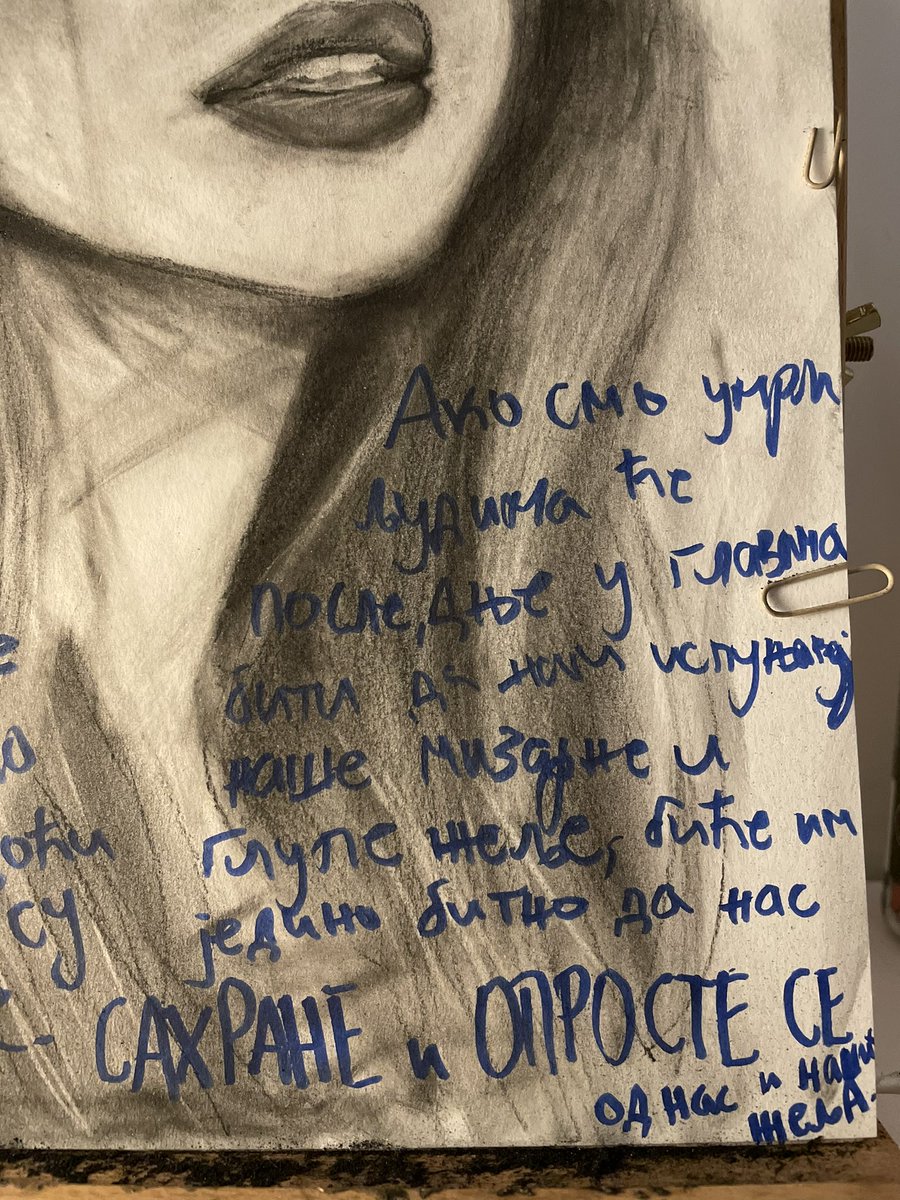 е
о
оћи
су
Ако смо умрли
људима ће
последње у главама
бити да нам
наше мизарне и
глупе жеље, биће им
једино битно да нас
САХРАНЕ и ОПРОСТЕ СЕ
од нас и наших
жељА.